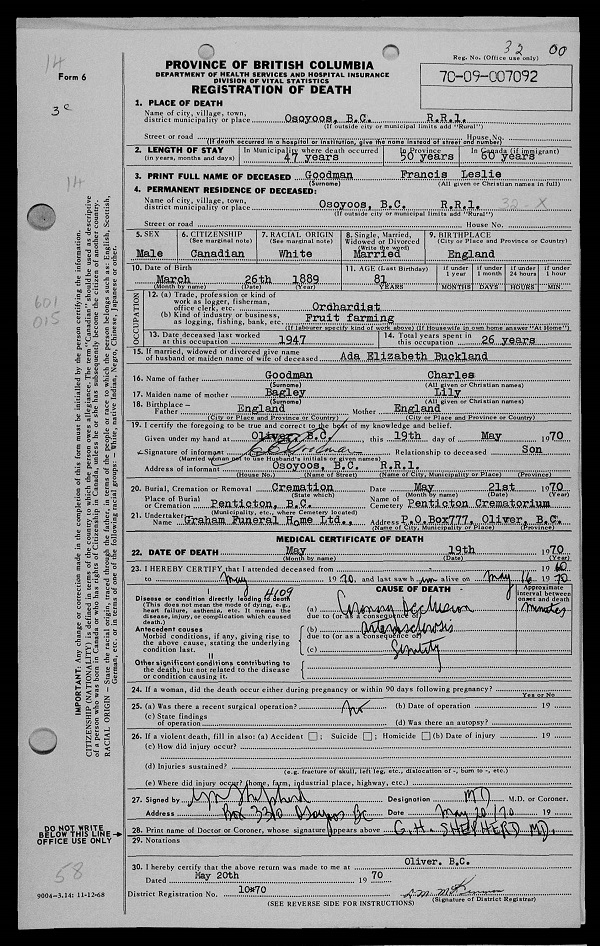 32 00
14
Form 6
3c
PROVINCE OF BRITISH COLUMBIA
DEPARTMENT OF HEALTH SERVICES AND HOSPITAL INSURANCE
DIVISION OF VITAL STATISTICS
REGISTRATION OF DEATH
Reg. No. (Office use only)
70-09-007092
1. PLACE OF DEATH
Name of city, village, town, district municipality or place Osoyoos, B.C. R.R.1.
(If outside city or municipal limits add "Rural")
Street or road House No.
(If death occurred in a hospital or institution, give the name instead of street and number)
2. LENGTH OF STAY (in years, months and days) In Municipality where death occurred 47 years In Province 50 years In Canada (if immigrant) 60 years
14
3. PRINT FULL NAME OF DECEASED Goodman Francis Leslie
(Surname) (All given or Christian names in full)
4. PERMANENT RESIDENCE OF DECEASED:
Name of city, village, town, district municipality or place Osoyoos, B.C. R.R.1. 32 X
(If outside city or municipal limits add "Rural")
Street or road House No.
5. SEX Male
6. CITIZENSHIP (See marginal note) Canadian
7. RACIAL ORIGIN (See marginal note) White
8. Single, Married, Widowed or Divorced (Write the word) Married
9. BIRTHPLACE (City or Place and Province or Country) England
10. Date of Birth March 26th 1889
(Month by name) (Date) (Year)
11. AGE (Last Birthday) 81 YEARS
If under 1 year MONTHS If under 1 month DAYS If under 24 hours HOURS If under 1 hour MIN.
601
015
OCCUPATION
12. (a) Trade, profession or kind of work as logger, fisherman, office clerk, etc. Orchardist
(b) Kind of industry or business, as logging, fishing, bank, etc. Fruit farming
(If labourer specify kind of work above) (If Housewife in own home answer "At Home")
13. Date deceased last worked at this occupation 1947
14. Total years spent in this occupation 26 years
15. If married, widowed or divorced give name of husband or maiden name of wife of deceased Ada Elizabeth Buckland
16. Name of father Goodman Charles
(Surname) (All given or Christian names)
17. Maiden name of mother Bagley Lily
(Surname) (All given or Christian names)
18. Birthplace— Father England Mother England
(City or Place and Province or Country) (City or Place and Province or Country)
19. I certify the foregoing to be true and correct to the best of my knowledge and belief.
Given under my hand at Oliver, B.C. this 19th day of May 1970
Signature of informant Relationship to deceased Son
Address of informant Osoyoos, B.C. R.R.1.
(House No.) (Name of Street) (Name of City, Municipality or Place) (Province)
20. Burial, Cremation or Removal Cremation Date May 21st 1970
(State which) (Month by name) (Date) (Year)
Place of Burial or Cremation Penticton, B.C. Name of Cemetery Penticton Crematorium
(Municipality, etc., where Cemetery located)
21. Undertaker— Name Graham Funeral Home Ltd., Address P.O.Box777, Oliver, B.C.
(Name of City, Municipality or Place) (Province)
MEDICAL CERTIFICATE OF DEATH
22. DATE OF DEATH May 19th 1970
(Month by name) (Date) (Year)
23. I HEREBY CERTIFY that I attended deceased from 19 60
to May 19 70, and last saw him alive on May 16 19 70
I 4109
Disease or condition directly leading to death
(This does not mean the mode of dying, e.g., heart failure, asthenia, etc. It means the disease, injury, or complication which caused death.)
CAUSE OF DEATH
Approximate interval between onset and death
(a) Coronary Occlusion minutes
due to (or as a consequence of)
Antecedent causes
Morbid conditions, if any, giving rise to the above cause, stating the underlying condition last.
(b) Arteriosclerosis
due to (or as a consequence of)
(c) Senility
II
Other significant conditions contributing to the death, but not related to the disease or condition causing it.
24. If a woman, did the death occur either during pregnancy or within 90 days following pregnancy?
Yes or No
25. (a) Was there a recent surgical operation? No (b) Date of operation 19
(c) State findings of operation (d) Was there an autopsy?
26. If a violent death, fill in also: (a) Accident ; Suicide ; Homicide (b) Date of injury 19
(c) How did injury occur?
(d) Injuries sustained?
(e.g. fracture of skull, left leg, etc., dislocation of -, burn to -, etc.)
(e) Where did injury occur? (home, farm, industrial place, highway, etc.)
27. Signed by G H Shepherd Designation MD M.D. or Coroner.
Address Box 330 Osoyoos BC Date May 20/70 19
28. Print name of Doctor or Coroner, whose signature appears above G.H. SHEPHERD MD.
DO NOT WRITE BELOW THIS LINE → OFFICE USE ONLY
29. Notations
30. I hereby certify that the above return was made to me at Oliver. B.C.
Dated May 20th 19 70
58
District Registration No. 10#70
(Signature of District Registrar)
9004-3.14: 11-12-68
(SEE REVERSE SIDE FOR INSTRUCTIONS)
IMPORTANT: Any change or correction made in the completion of this form must be initialled by the person certifying the information.
CITIZENSHIP (NATIONALITY) is defined in terms of the country to which the person owes allegiance. The term "Canadian" should be used as descriptive of a person who was born in Canada or who has rights of Citizenship in Canada, unless he or she has subsequently become the citizen of another country.
RACIAL ORIGIN — State the racial origin, traced through the father, in terms of the people or race to which the person belongs such as: English, Scottish, German, etc. or in terms of one of the following racial groups: — White, native Indian, Negro, Chinese, Japanese or other.